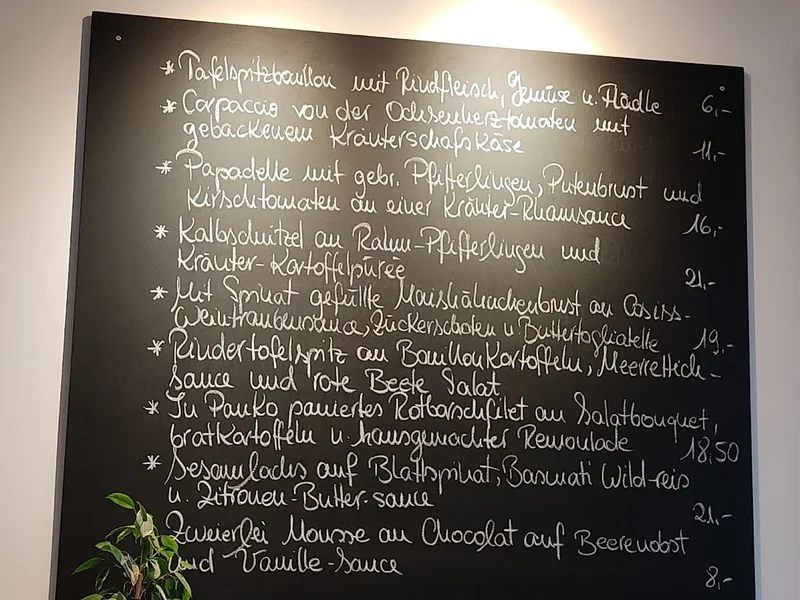 * Tafelspitzbouillon mit Rindfleisch, Gemüse u. Flädle 6,-
* Carpaccio von der Ochsenherztomaten mit
gebackenem Kräuterschafskäse 11,-
* Papadelle mit gebr. Pfifferlingen, Putenbrust und
Kirschtomaten an einer Kräuter-Rhamsauce 16,-
* Kalbschnitzel an Rahm-Pfifferlingen und
Kräuter-Kartoffelpürée 21,-
* Mit Spinat gefüllte Maishähnchenbrust an Cassiss-
Weintraubensauce, Zuckerschoten u Buttertagliatelle 19,-
* Rindertafelspitz an Bouillonkartoffeln, Meerrettich-
sauce und rote Beete Salat
* In Panko paniertes Rotbarschfilet an Salatbouquet,
bratkartoffeln u hausgemachter Remoulade 18,50
* Sesamlachs auf Blattspinat, Basmati Wild-reis
u. Zitronen-Butter-sauce 21,-
Zweierlei Mousse au Chocolat auf Beerenobst
und Vanille-Sauce 8,-